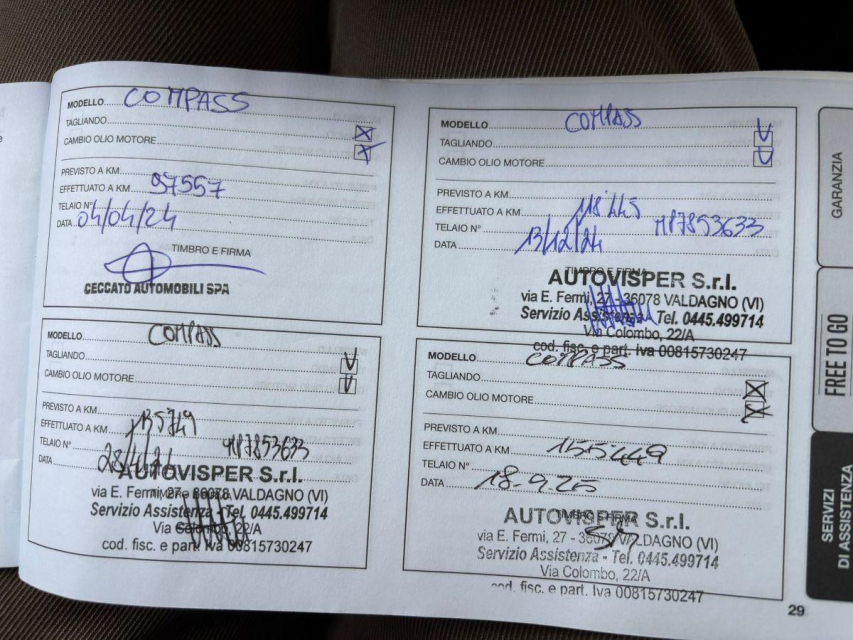 MODELLO COMPASS
TAGLIANDO
CAMBIO OLIO MOTORE
PREVISTO A KM
EFFETTUATO A KM 97557
TELAIO N°
DATA 04/04/24
TIMBRO E FIRMA
CECCATO AUTOMOBILI SPA
MODELLO COMPASS
TAGLIANDO
CAMBIO OLIO MOTORE
PREVISTO A KM
EFFETTUATO A KM
TELAIO N° MP7853633
DATA 13/12/24
TIMBRO E FIRMA
AUTOVISPER S.r.l.
via E. Fermi, 27 - 36078 VALDAGNO (VI)
Servizio Assistenza - Tel. 0445.499714
Via Colombo, 22/A
cod. fisc. e part. Iva 00815730247
MODELLO COMPASS
TAGLIANDO
CAMBIO OLIO MOTORE
PREVISTO A KM
EFFETTUATO A KM 135749
TELAIO N° MP7853633
DATA
AUTOVISPER S.r.l.
via E. Fermi, 27 - 36078 VALDAGNO (VI)
Servizio Assistenza - Tel. 0445.499714
Via Colombo, 22/A
cod. fisc. e part. Iva 00815730247
MODELLO COMPASS
TAGLIANDO
CAMBIO OLIO MOTORE
PREVISTO A KM
EFFETTUATO A KM 155449
TELAIO N°
DATA 18.9.25
AUTOVISPER S.r.l.
via E. Fermi, 27 - 36078 VALDAGNO (VI)
Servizio Assistenza - Tel. 0445.499714
Via Colombo, 22/A
cod. fisc. e part. Iva 00815730247
GARANZIA
FREE TO GO
SERVIZI
DI ASSISTENZA
29